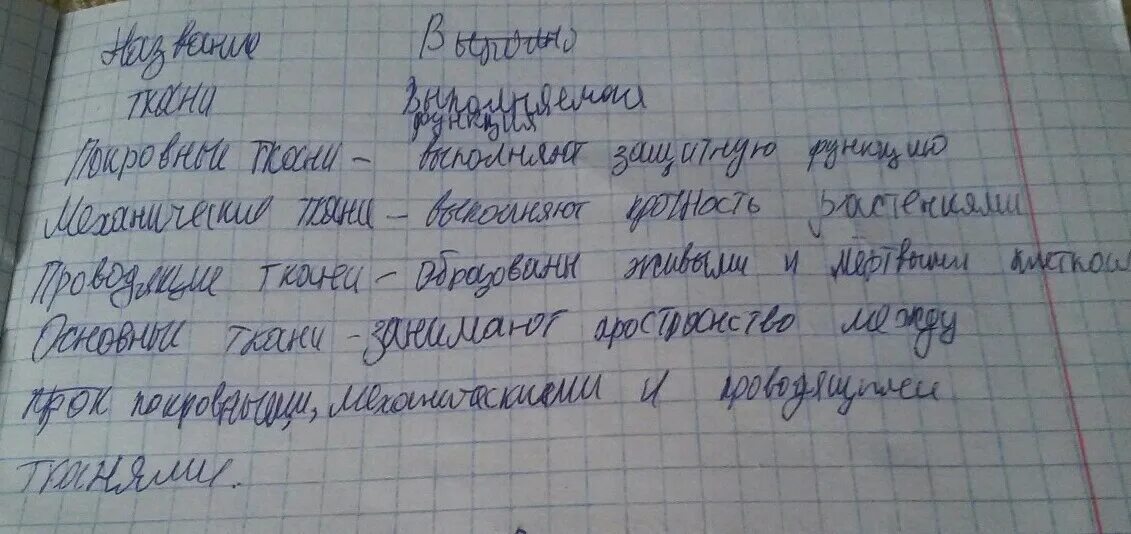 Название
ткани Выполняемая
функция
Покровные ткани – выполняют защитную функцию
Механические ткани – выполняют прочность растениями
Проводящие ткани – образованн живыми и мёртвыми клеткам
Основные ткани – занимают пространство между
покровными, механическими и проводящими
тканями.